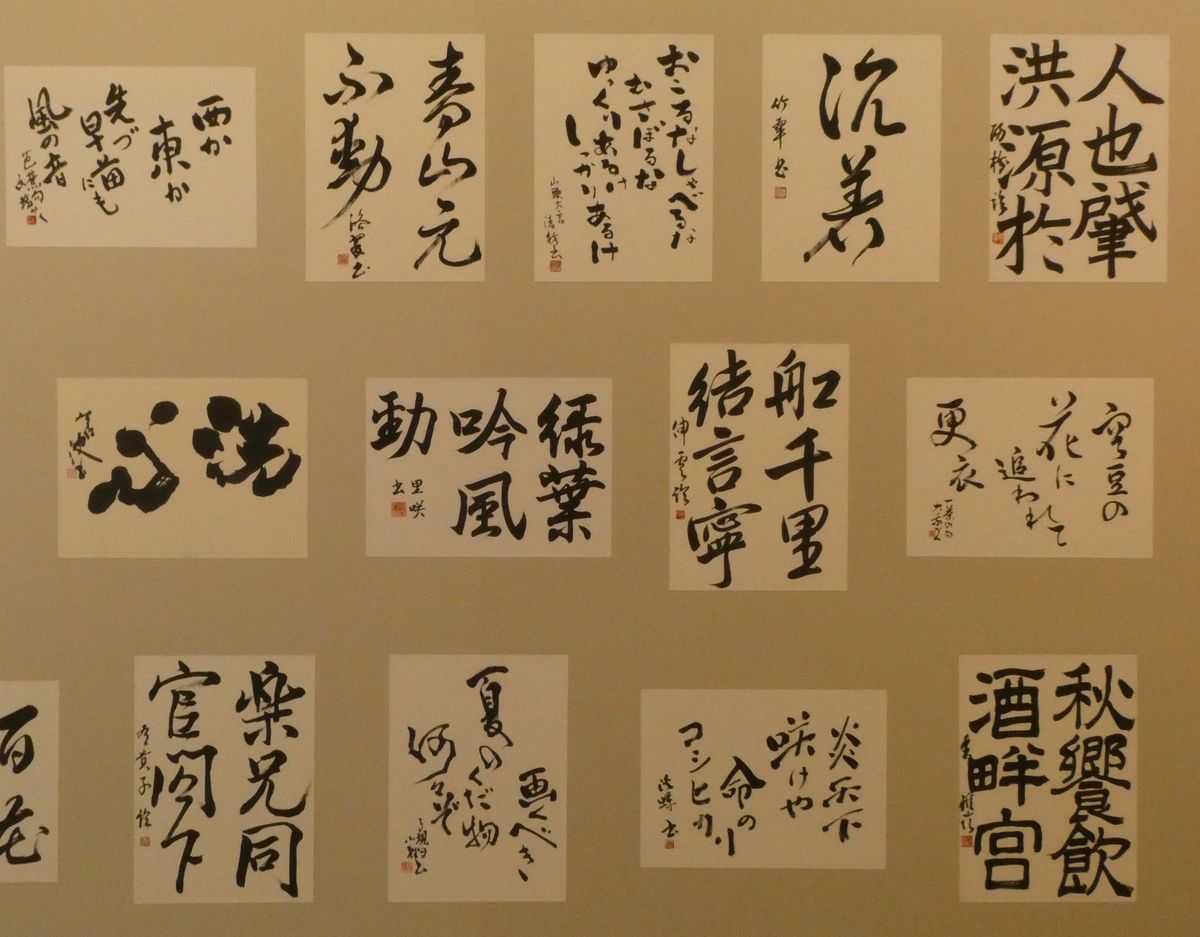 西か
東か
先づ
早苗
にも
風の音
芭蕉句
青山元
不動
おこるなしゃべるな
むさぼるな
ゆっくりあるけ
しっかりあるけ
山頭火言
沈着
人也肇
洪源於
洗
心
緑葉
吟風
勁
里咲
書
船千里
結言寧
伸雲臨
空豆の
花に
追われて
更衣
一茶の句
百花
楽兄同
官閣下
画くべき
夏のくだ物
何々ぞ
子規句
炎天下
咲けや
命の
コシヒカリ
秋饗飲
酒畔宮